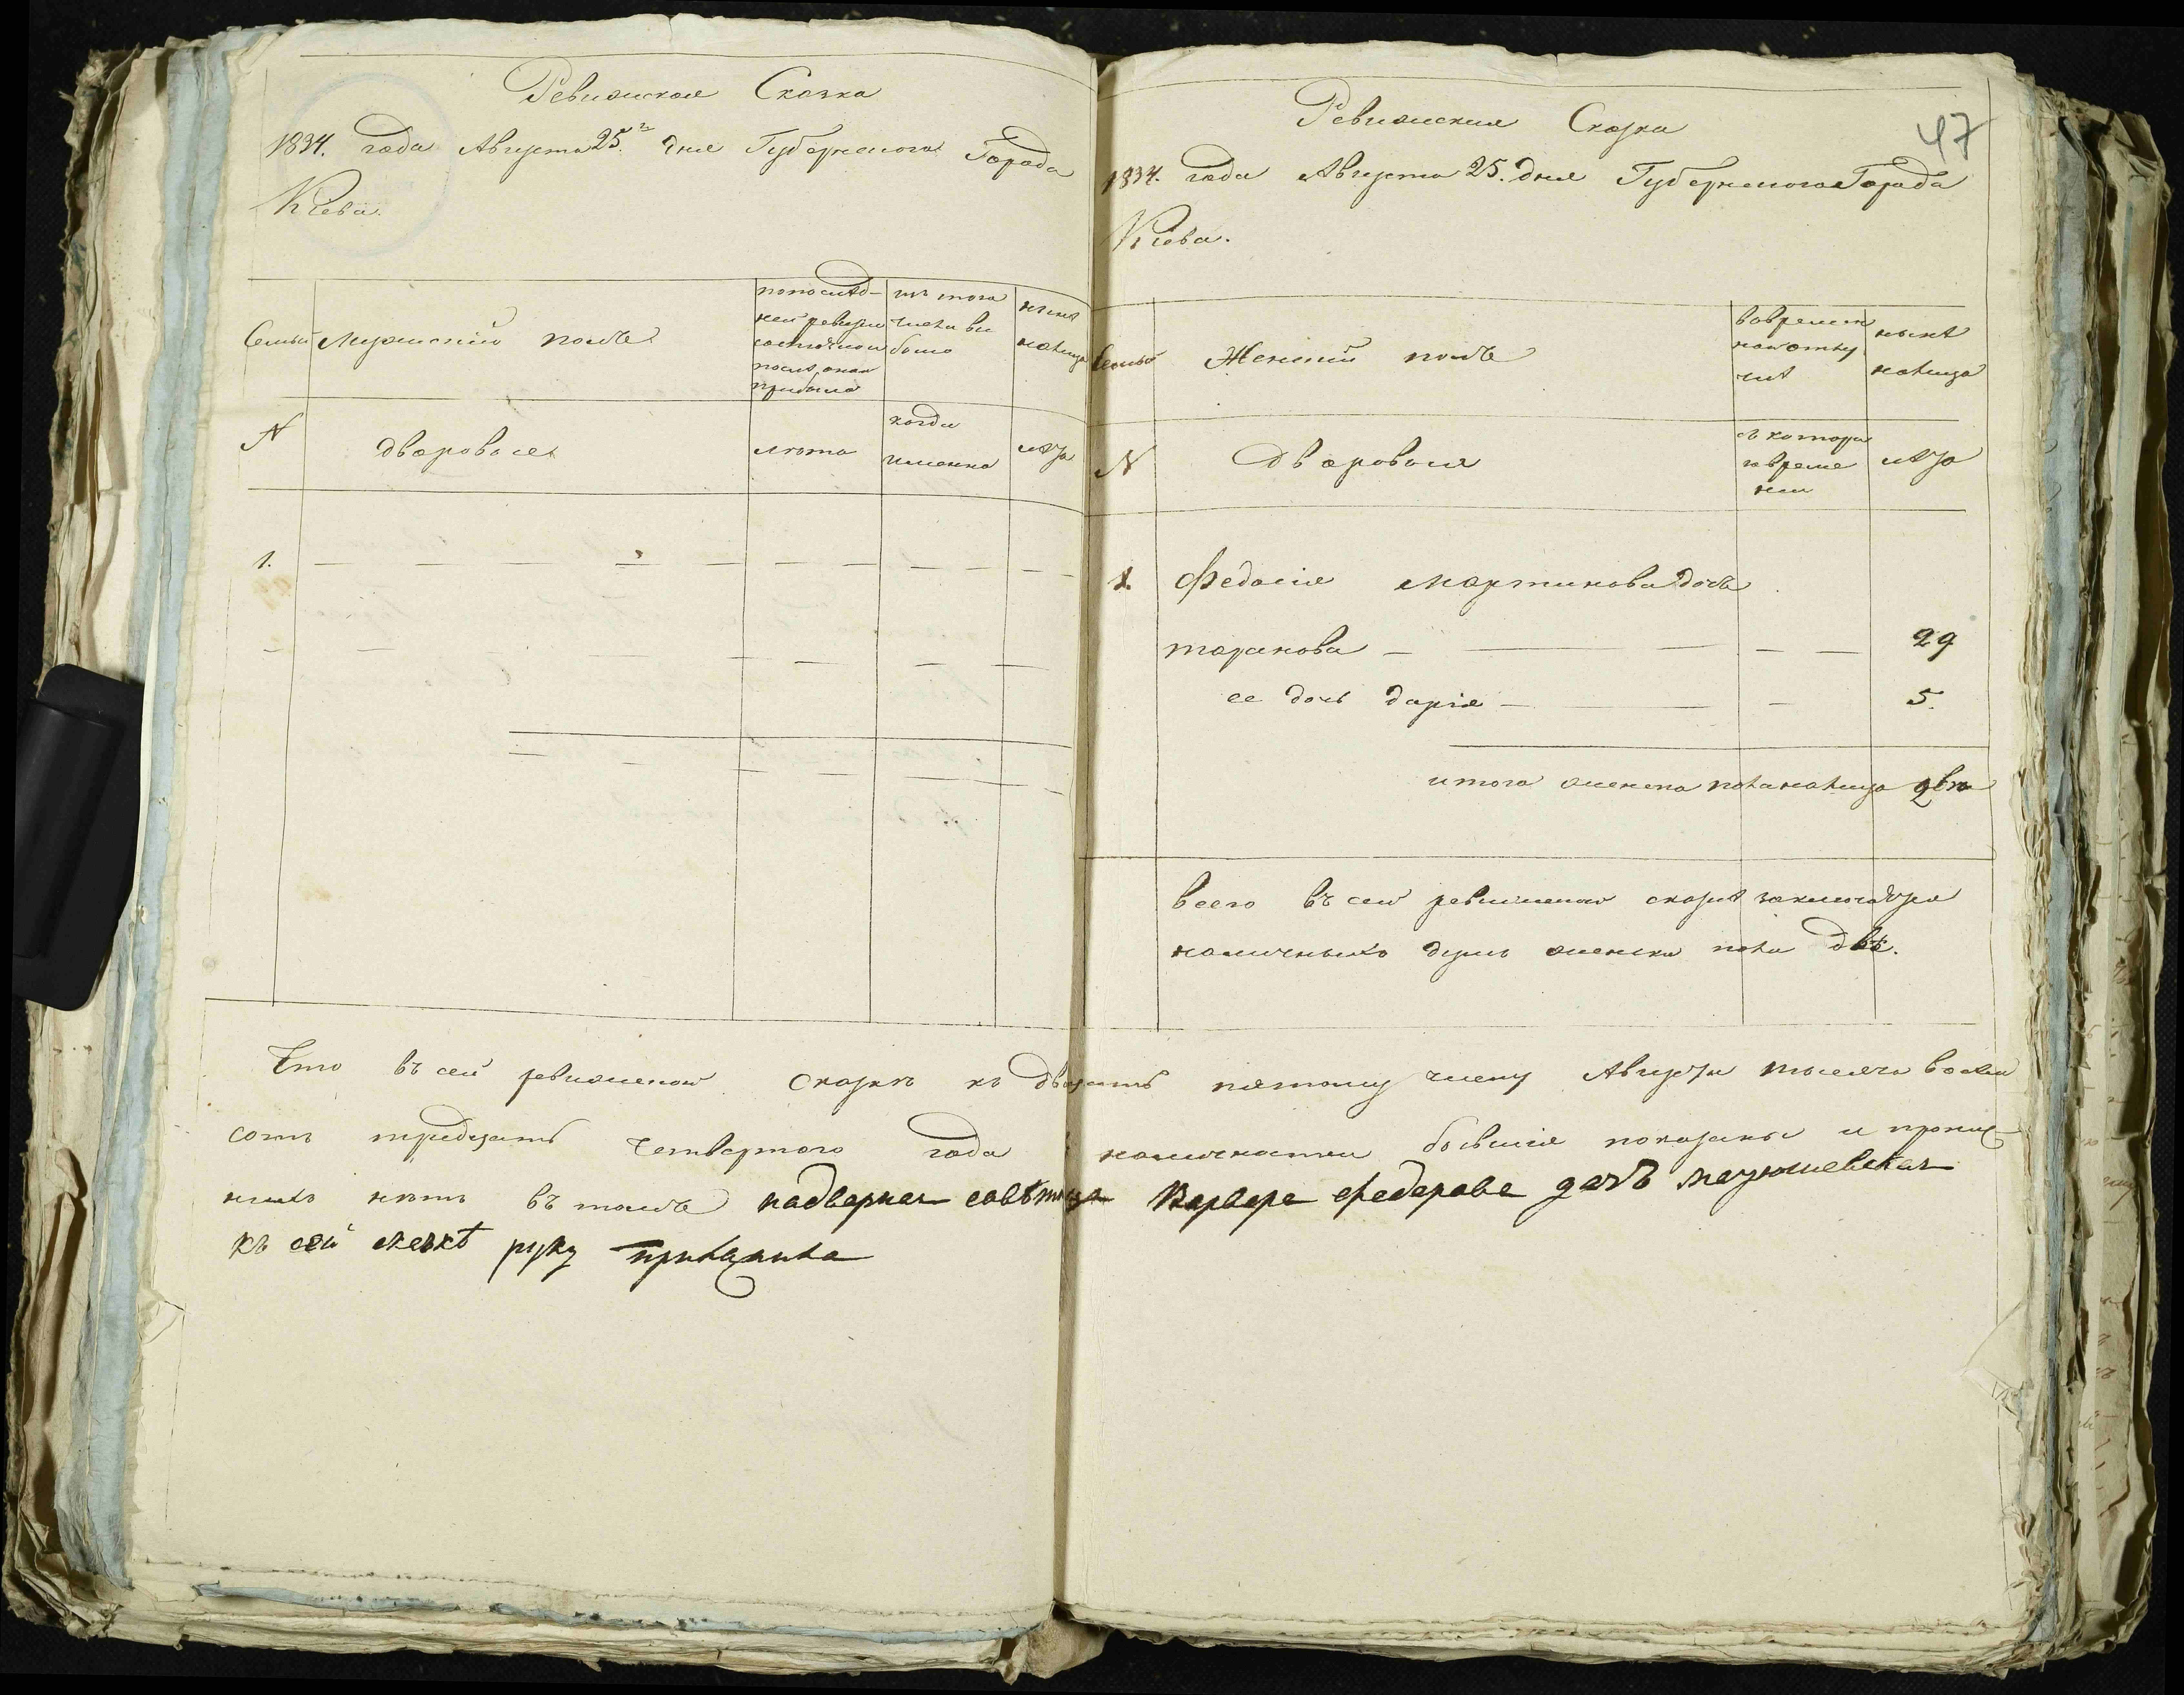 Ревижская Сказка
1834. года Августа 25.го дня Губернского Города
Кіева.
Семьи
Мужескій полъ
по послѣд-
ней ревизіи
состояло и
послѣ оной
прибыло
изъ того
числа вы
было
нынѣ
налицо
N
дворовые
лѣта
когда
именно
лѣта
1.
47
Ревижская Сказка
1834. года Августа 25. дня Губернского Города
Кіева.
Семьи
Женскій полъ
во времен
ной отлу
чкѣ
нынѣ
налицо
N
дворовыя
съ котора
го време
ни
лѣта
1. Федосія Мартинова дочь
таранова 29
ее дочь дарія 5.
итого женска пола налицо двѣ
всего въ сей ревижской сказкѣ заключается
наличныхъ душъ женска пола двѣ.
Что въ сей ревижской сказкѣ къ двацать пятому числу Августа тысяча восем
сотъ тридцать четвертого года наличности бывшіе показаны и пропис
ныхъ нѣтъ въ томъ надворная совѣтница Варвара федорова дочь
къ сей сказкѣ руку приложила